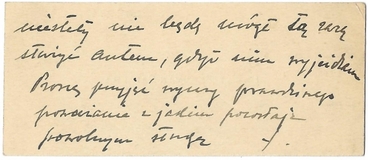 niestety nie będę mógł tą razą
służyć autem, gdyż nim wyjeżdżam
Proszę przyjąć wyrazy prawdziwego
poważania z jakim pozostaję
powolnym sługą